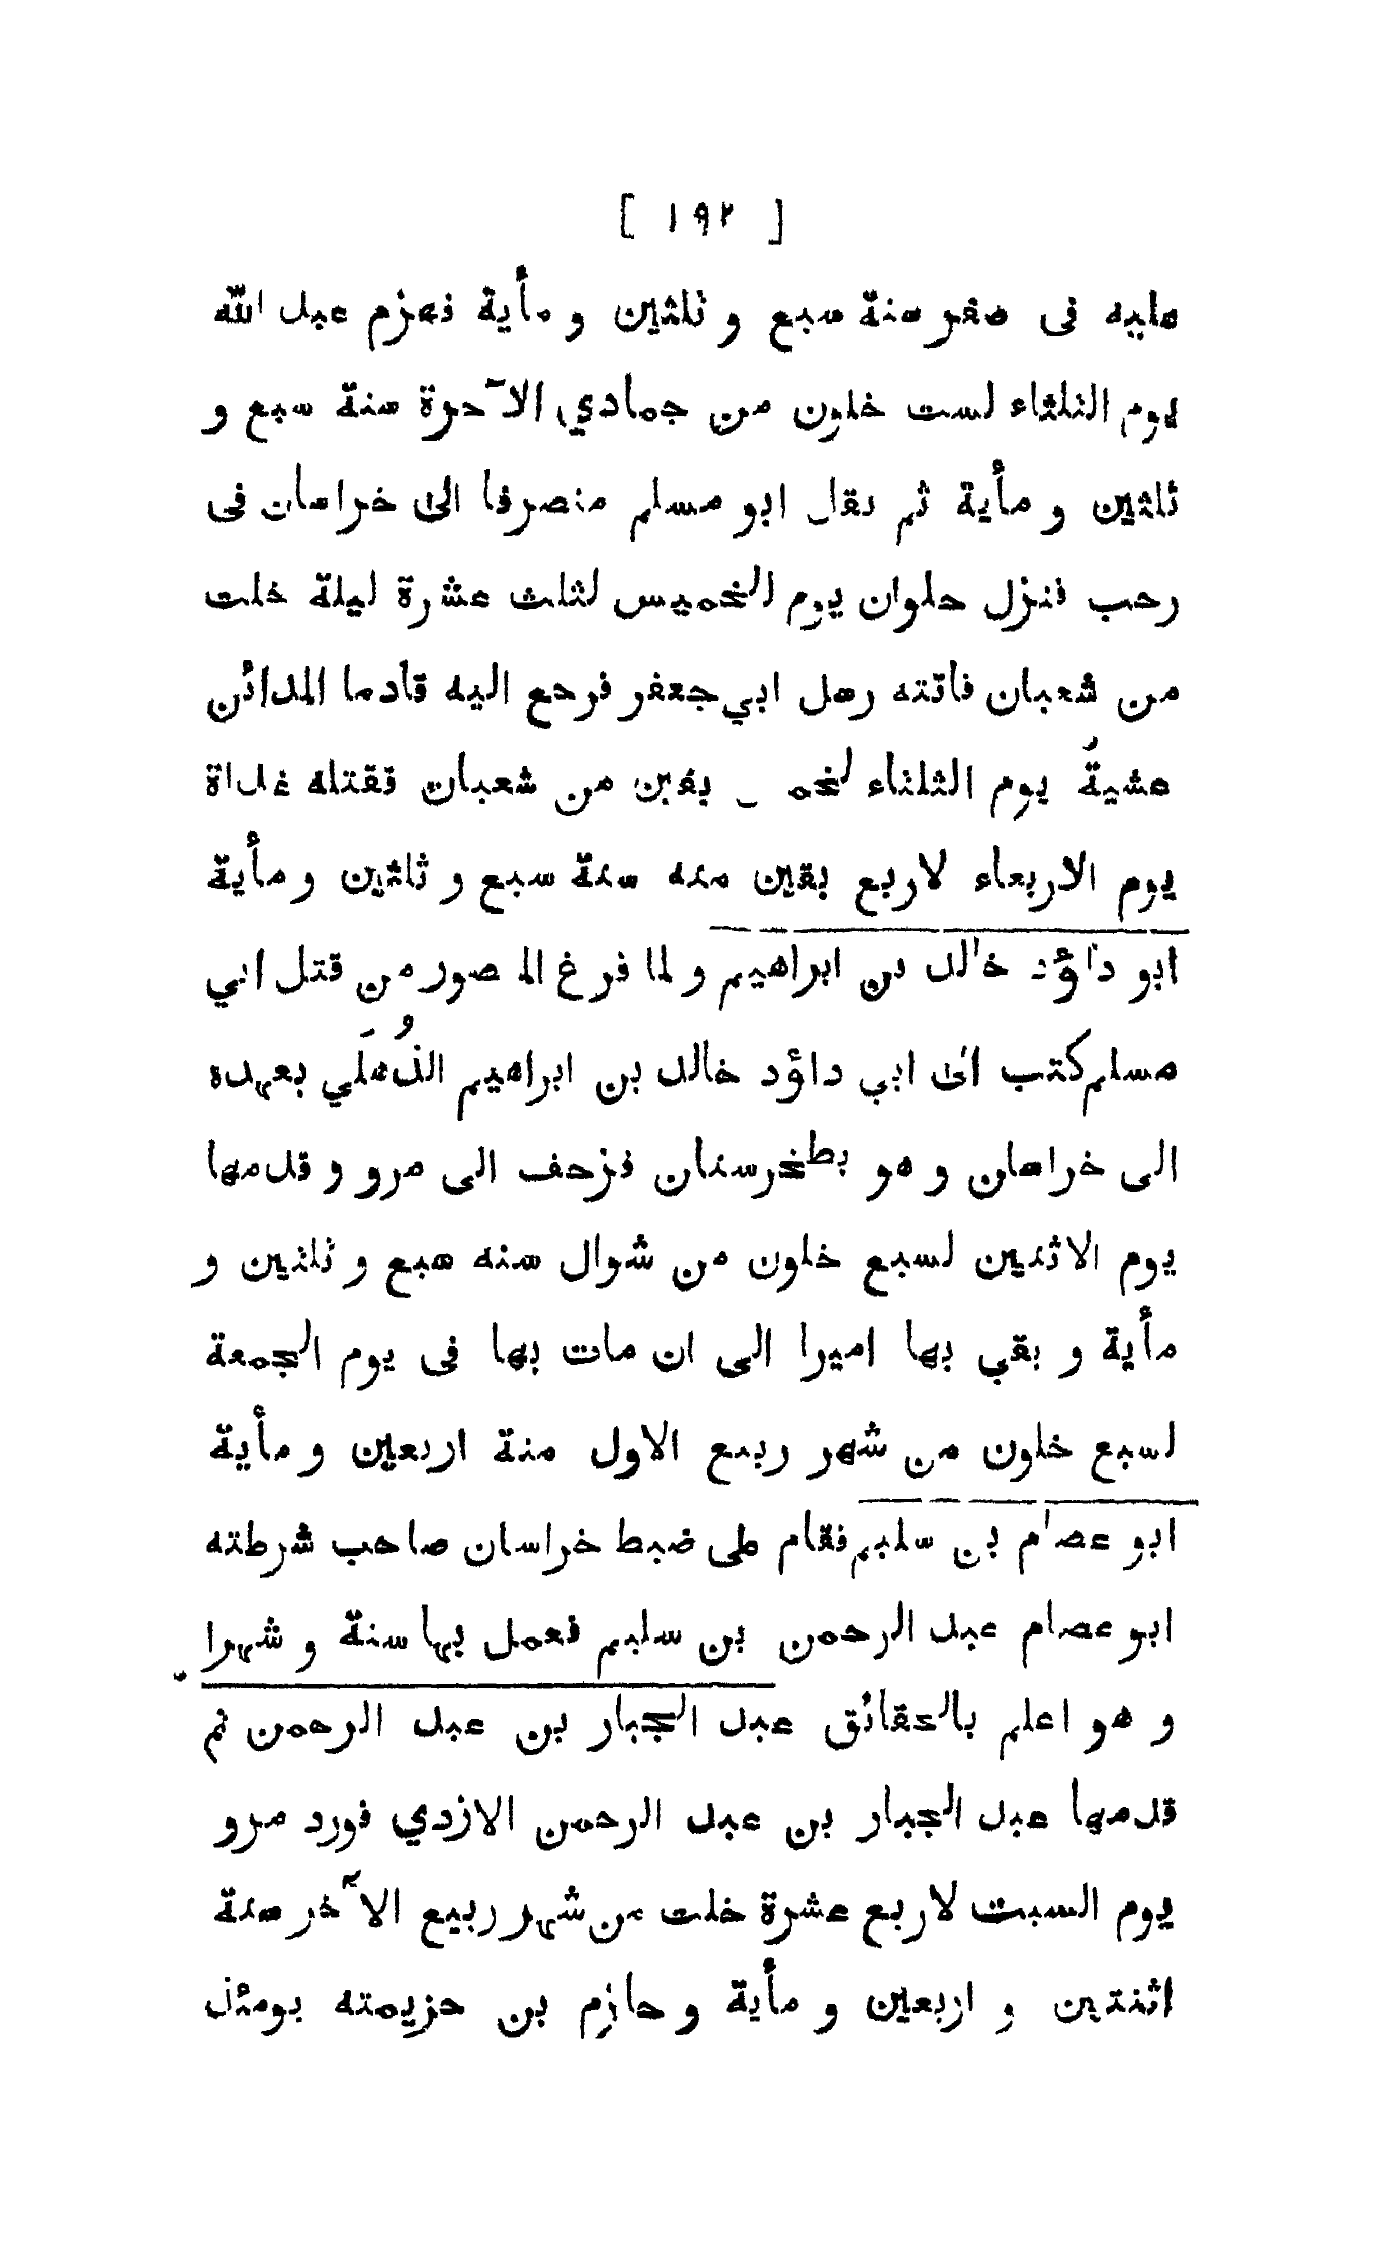 [ ١٩٢ ]
عليه فى صفر سنة سبع و ثلثين و مأية فهزم عبد الله
يوم الثلثاء لست خلون من جمادي الآخرة سنة سبع و
ثلثين و مأية ثم نقل ابو مسلم منصرفا الى خراسان فى
رجب فنزل حلوان يوم الخميس لثلث عشرة ليلة خلت
من شعبان فاتته رسل ابي جعفر فرجع اليه قادما المدائن
عشيةُ يوم الثلثاء بقين من شعبان فقتله غداة
يوم الاربعاء لاربع بقين منه سنة سبع و ثلثين و مأية
ابو داؤد خالد بن ابراهيم و لما فرغ المنصور من قتل ابي
مسلم كتب الى ابي داؤد خالد بن ابراهيم الذُهلَي بعهده
الى خراسان و هو بطخرستان فزحف الى مرو و قدمها
يوم الاثنين لسبع خلون من شوال سنه سبع و ثلثين و
مأية و بقي بها اميرا الى ان مات بها فى يوم الجمعة
لسبع خلون من شهر ربيع الاول سنة اربعين و مأية
ابو عصام بن سليم فقام على ضبط خراسان صاحب شرطته
ابو عصام عبد الرحمن بن سليم فعمل بها سنة و شهرا
و هو اعلم بالحقائق عبد الجبار بن عبد الرحمن ثم
قدمها عبد الجبار بن عبد الرحمن الازدي فورد مرو
يوم السبت لاربع عشرة خلت من شهر ربيع الآخر سنة
اثنتين و اربعين و مأية و حازم بن حزيمته يومئذ